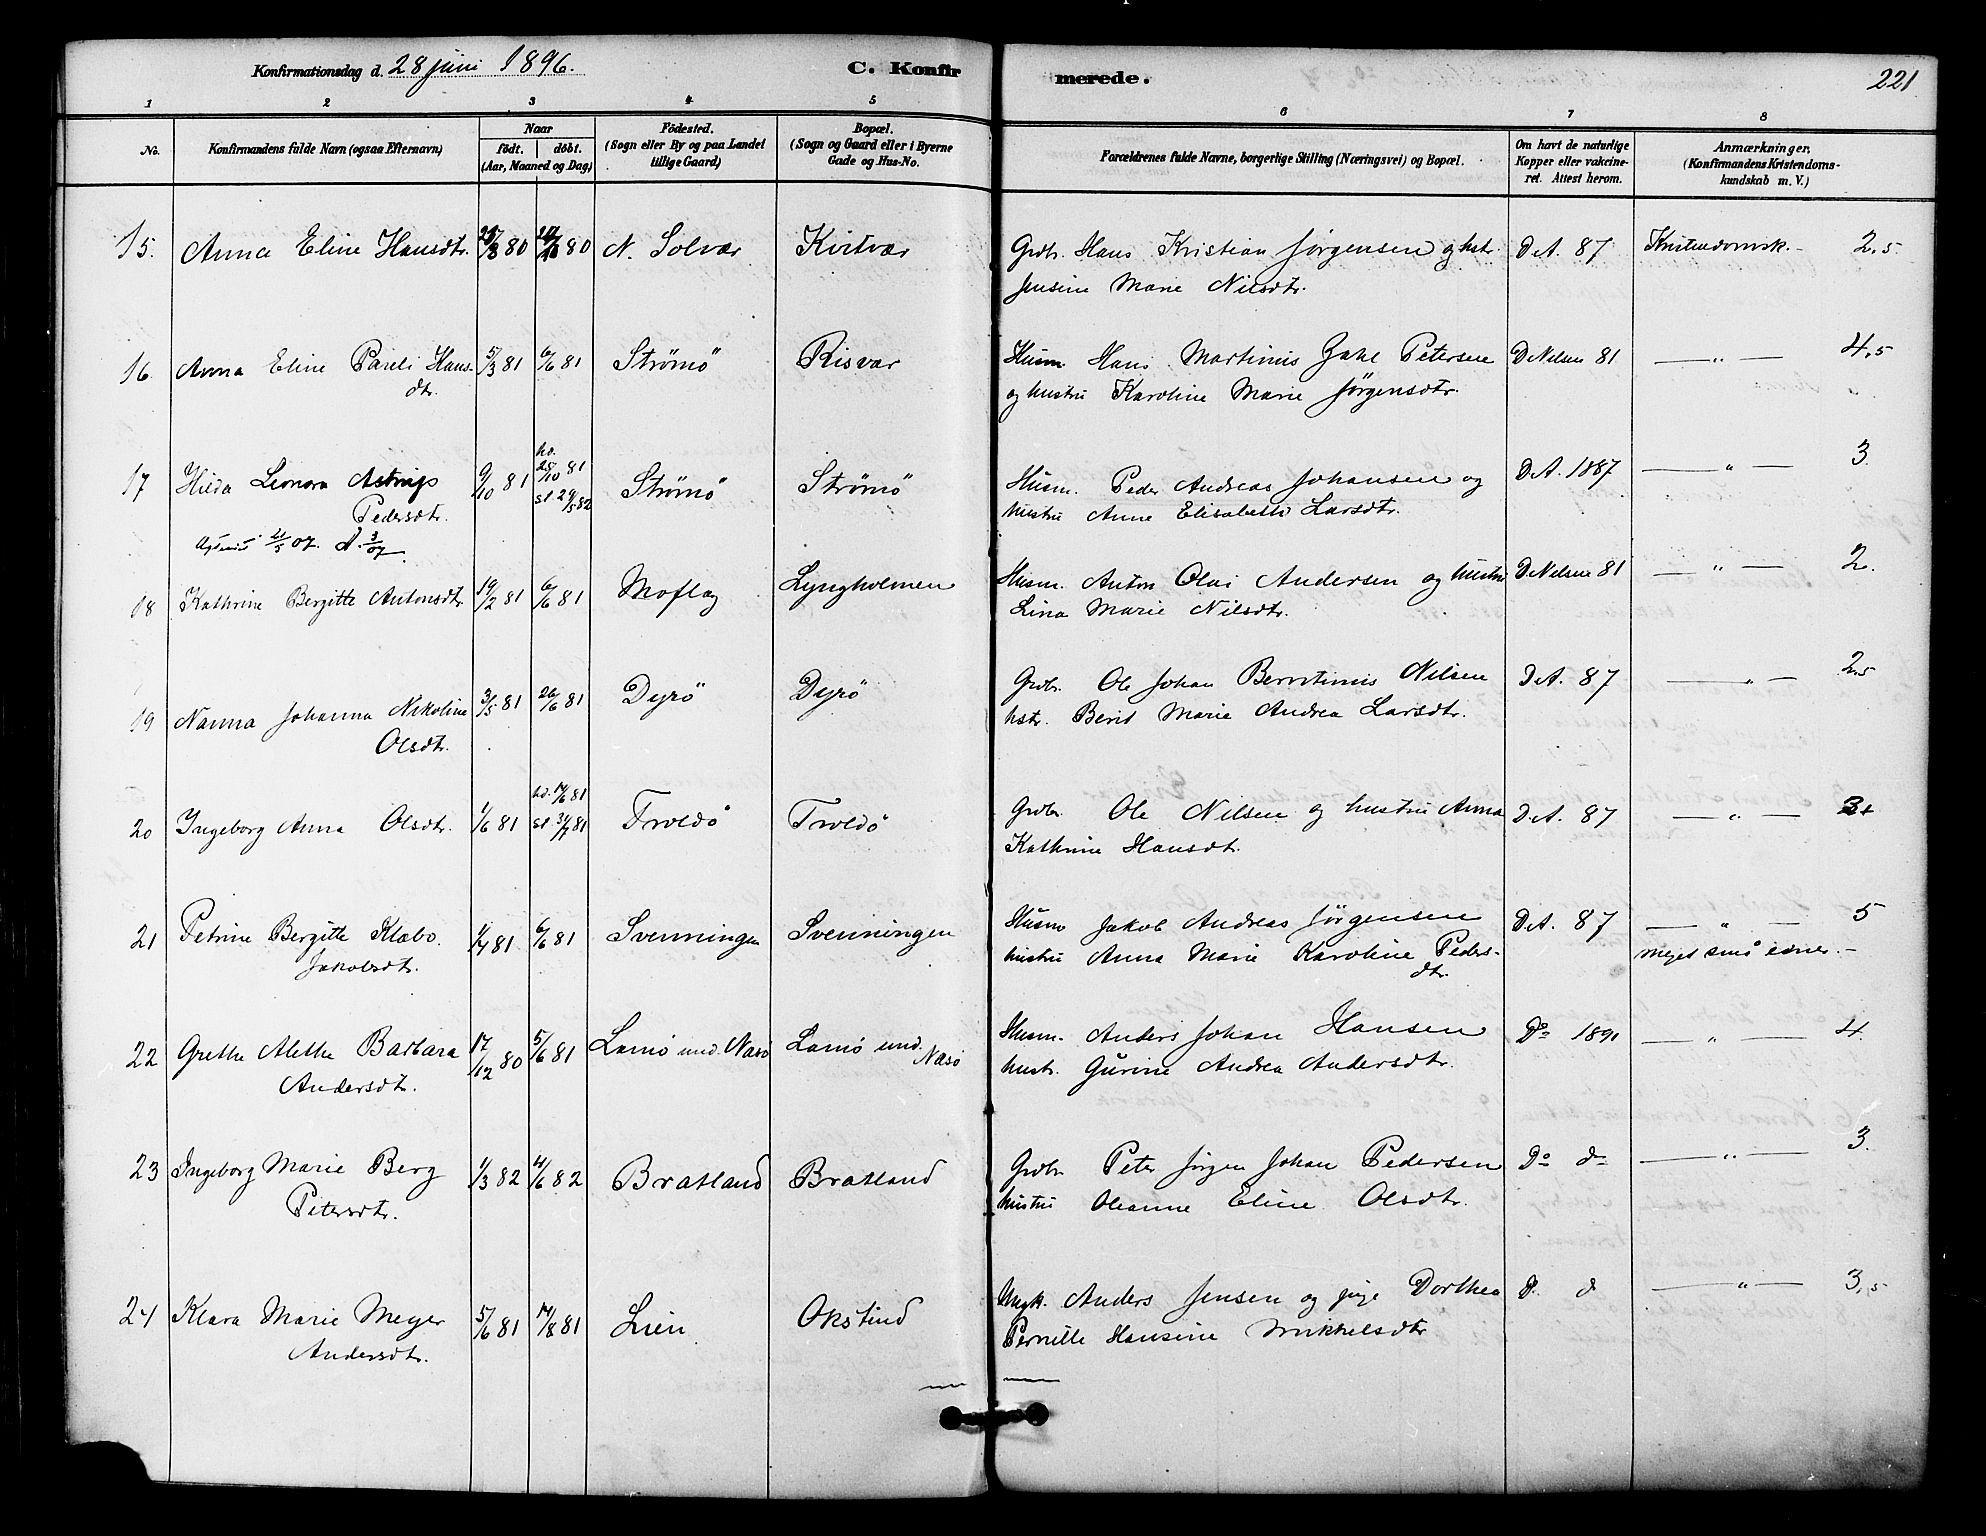 Konfirmationsdag d. 28 juni 1896.
C. Konfir
merede.
221
1 2 3 4 5 6 7 8
No.
Konfirmandens fulde Navn (ogsaa Efternavn)
Naar
født. døbt.
(Aar, Maaned og Dag)
Fødested.
(Sogn eller By og paa Landet
tillige Gaard)
Bopæl.
(Sogn og Gaard eller i Byerne
Gade og Hus-No.
Forældrenes fulde Navne, borgerlige Stilling (Næringsvei) og Bopæl.
Om havt de naturlige
Kopper eller vakcine-
ret. Attest herom.
Anmærkninger,
(Konfirmandens Kristendoms-
kundskab m. V.)
15. Anna Eline Hansdtr. 80 80 N. Solvær Kvitvær Grdbr. Hans Kristian Jørgensen og hstr. D.A. 87 Kristendomsk. - 2,5
Jensine Marie Nilsdtr.
16. Anna Eline Pareli Hans- 5/3 81 6/6 81 Strömö Risvær Husm. Hans Martinus Zahl Petersen D. Nilsen 81 — " — 4,5
dtr. og hustru Karoline Marie Jørgensdtr.
17 Hilda Leonora Astrup 9/10 81 hd. 28/10 81 Strömö Strömö Husm. Peder Andreas Johansen og D.A. 1887 — " — 3
Pedersdtr. st 29/5 82 hustru Anne Elisabeth Larsdtr.
21/5 07. A. 3/07
18 Kathrine Bergitte Antonsdtr. 19/2 81 6/6 81 Moflag Lyngholmen Husm. Anton Olai Andersen og hustru D. Nilsen 81 — " — 2.
Lina Marie Nilsdtr.
19 Nanna Johanna Nikoline 3/5 81 26/6 81 Dyrö Dyrö Grdbr. Ole Johan Berntinus Nilsen D.A. 87 — " — 2,5
Olsdtr. hstr. Berit Marie Andrea Larsdtr.
20 Ingeborg Anna Olsdtr. 1/6 81 hd. 14/6 81 st 31/7 81 Troldö Troldö Grdbr. Ole Nilsen og hustru Anna D.A. 87 — " —
Kathrine Hansdtr.
21 Petrine Bergitte Klæbo. 1/4 81 6/6 81 Svenningen Svenningen Husm Jakob Andreas Jørgensen D.A. 87 — " — 5
Jakobsdtr. hustru Anna Marie Karoline Peders- meget små evner. -
dtr.
22 Grethe Alethe Barbara 17/12 80 5/6 81 Lamö und. Nasö Lamö und. Næsö Husm. Anders Johan Hansen Do 1891 — " — 4.
Andersdtr. hustr. Gurine Andrea Andersdtr.
23 Ingeborg Marie Berg 1/3 82 4/6 82 Bratland Bratland Grdbr Peter Jørgen Johan Pedersen Do do — " — 3.
Petersdtr. hustru Oleanne Eline Olsdtr.
24 Klara Marie Meyer 5/6 81 14/8 81 Lien Okstind Ungk. Anders Jensen og pige Dorthea D. d — " — 3,5
Andersdtr. Pernille Hansine Mikkelsdtr